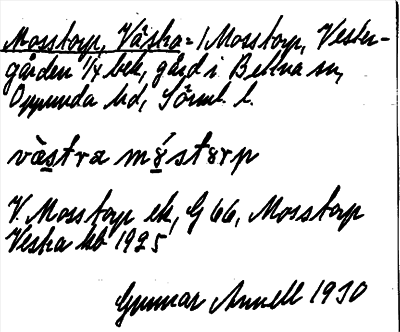 Mosstorp, Västra = / Mosstorp, Vester-
gården 1/4 bek, gård i Bettna sn,
Oppunda hd, Sörml. l.
västra mósstørp
V. Mosstorp ek, G 66, Mosstorp
Vestra kb 1925
Gunnar Annell 1930